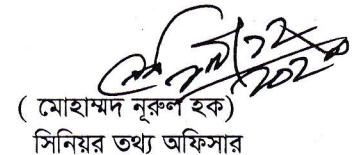 ( মোহাম্মদ নূরুল হক)
সিনিয়র তথ্য অফিসার